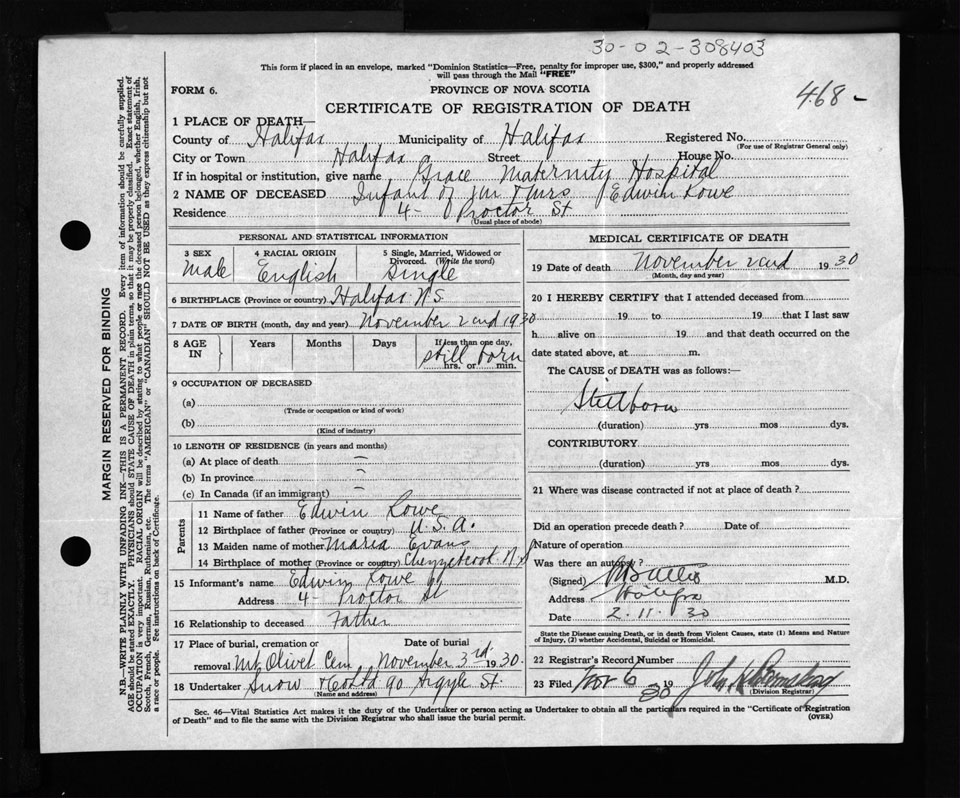 30-02-308403
This form if placed in an envelope, marked "Dominion Statistics—Free, penalty for improper use, $300," and properly addressed
will pass through the Mail "FREE"
FORM 6. PROVINCE OF NOVA SCOTIA 468-
CERTIFICATE OF REGISTRATION OF DEATH
1 PLACE OF DEATH—
County of Halifax Municipality of Halifax Registered No.
(For use of Registrar General only)
City or Town Halifax Street House No.
If in hospital or institution, give name Grace Maternity Hospital
2 NAME OF DECEASED Infant of Mr & Mrs Edwin Lowe
Residence 4- Proctor St
(Usual place of abode)
PERSONAL AND STATISTICAL INFORMATION
3 SEX 4 RACIAL ORIGIN 5 Single, Married, Widowed or
Divorced. (Write the word)
Male English Single
6 BIRTHPLACE (Province or country) Halifax N.S.
7 DATE OF BIRTH (month, day and year) November 2nd 1930
8 AGE IN Years Months Days If less than one day,
still born
hrs. or min.
9 OCCUPATION OF DECEASED
(a)
(Trade or occupation or kind of work)
(b)
(Kind of industry)
10 LENGTH OF RESIDENCE (in years and months)
(a) At place of death —
(b) In province —
(c) In Canada (if an immigrant) —
Parents
11 Name of father Edwin Lowe
12 Birthplace of father (Province or country) U.S.A.
13 Maiden name of mother Maria Evans
14 Birthplace of mother (Province or country) Chezzetcook N.S
15 Informant's name Edwin Lowe
Address 4- Proctor St
16 Relationship to deceased Father
17 Place of burial, cremation or Date of burial
removal Mt. Olivet Cem November 3rd 1930.
18 Undertaker Snow & Co Ltd 90 Argyle St
(Name and address)
MEDICAL CERTIFICATE OF DEATH
19 Date of death November 2nd 1930
(Month, day and year)
20 I HEREBY CERTIFY that I attended deceased from
19 to 19 that I last saw
h alive on 19 and that death occurred on the
date stated above, at m.
The CAUSE of DEATH was as follows:—
Stillborn
(duration) yrs mos dys.
CONTRIBUTORY
(duration) yrs mos dys.
21 Where was disease contracted if not at place of death?
Did an operation precede death? Date of
Nature of operation
Was there an autopsy?
(Signed) M.D.
Address Halifax
Date 2.11.30
State the Disease causing Death, or in death from Violent Causes, state (1) Means and Nature
of Injury, (2) whether Accidental, Suicidal or Homicidal.
22 Registrar's Record Number
23 Filed Nov 6 19 30 John
(Division Registrar)
Sec. 46—Vital Statistics Act makes it the duty of the Undertaker or person acting as Undertaker to obtain all the particulars required in the "Certificate of Registration
of Death" and to file the same with the Division Registrar who shall issue the burial permit. (OVER)
MARGIN RESERVED FOR BINDING
N.B.—WRITE PLAINLY WITH UNFADING INK—THIS IS A PERMANENT RECORD. Every item of information should be carefully supplied.
AGE should be stated EXACTLY. PHYSICIANS should STATE CAUSE OF DEATH in plain terms, so that it may be properly classified. Exact statement of
OCCUPATION is very important. RACIAL ORIGIN will be described by stating to what people or race the deceased person belonged, whether English, Irish,
Scotch, French, German, Russian, Ruthenian, etc. The terms "AMERICAN" or "CANADIAN" SHOULD NOT BE USED as they express citizenship but not
a race or people. See instructions on back of Certificate.